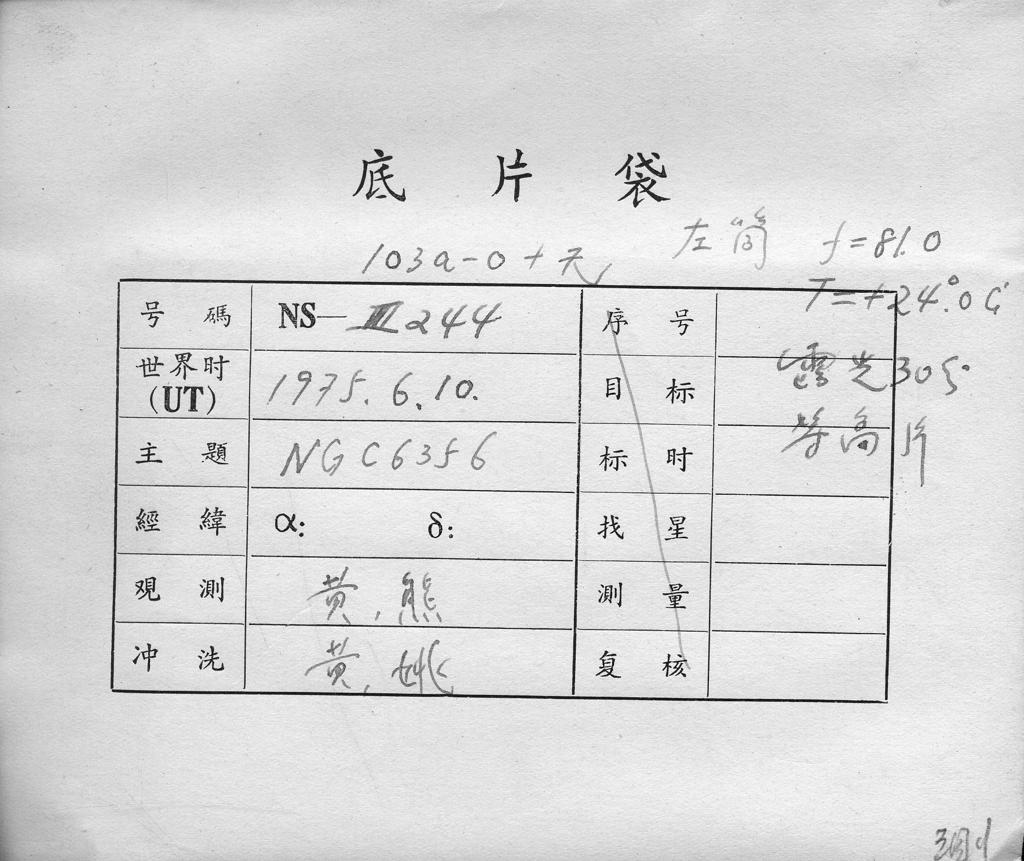 底 片 袋
左筒 f=81.0
103a-0+天
T=+24°.0C
号 碼 NS—Ⅲ244 序 号
世界时 (UT) 1975.6.10. 目 标
露光30分
主 題 NGC6356 标 时
等高片
經 緯 α: δ: 找 星
观 測 黄,熊 測 量
冲 洗 黄,姚 复 核